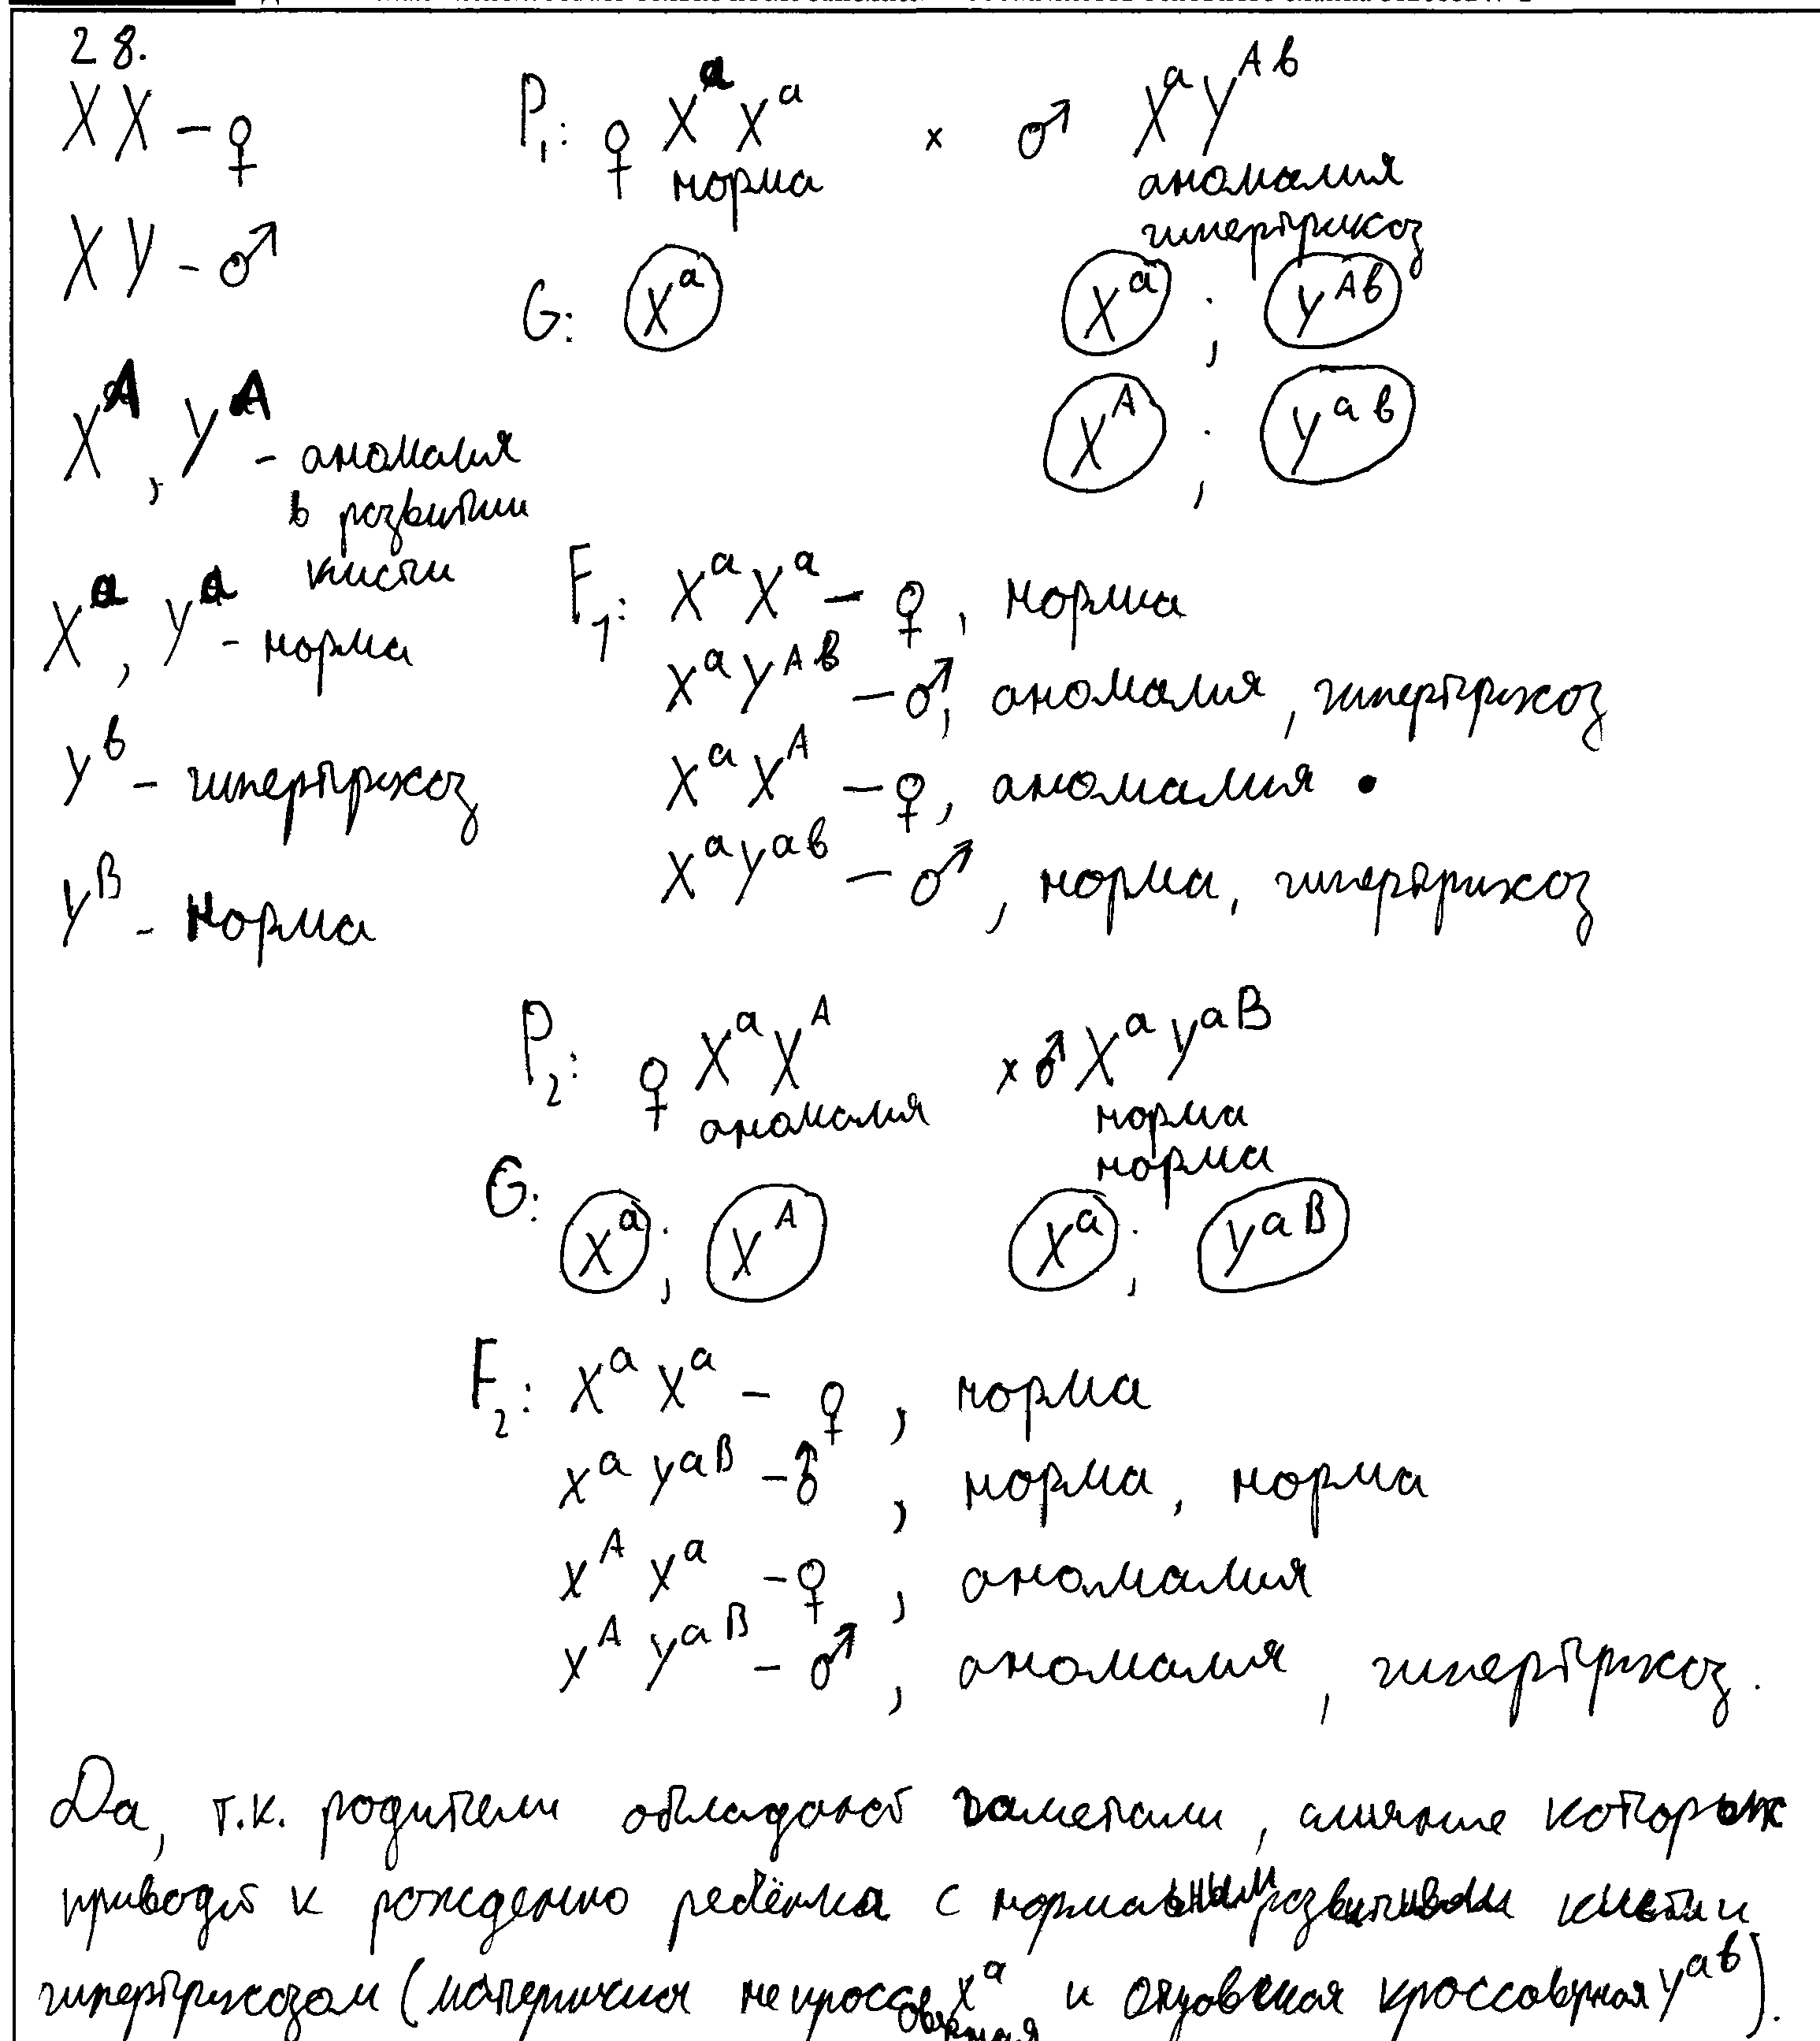 28.
XX - ♀
XY - ♂
X^A, Y^A - аномалия
в развитии
кисти
X^a, Y^a - норма
Y^b - гипертрихоз
Y^B - Норма
P₁: ♀ X^a X^a × ♂ X^a Y^Ab
норма аномалия
гипертрихоз
G: X^a X^a ; Y^Ab
X^A ; Y^ab
F₁: X^a X^a - ♀, норма
X^a Y^Ab - ♂, аномалия, гипертрихоз
X^a X^A - ♀, аномалия •
X^a Y^ab - ♂, норма, гипертрихоз
P₂: ♀ X^a X^A × ♂ X^a Y^aB
аномалия норма
норма
G: X^a ; X^A X^a ; Y^aB
F₂: X^a X^a - ♀, норма
X^a Y^aB - ♂, норма, норма
X^A X^a - ♀, аномалия
X^A Y^aB - ♂, аномалия, гипертрихоз.
Да, т.к. родители обладают гаметами, слияние которых
приводит к рождению ребёнка с нормальным развитием кисти и
гипертрихозом (материнская некроссоверная X^a и отцовская кроссоверная Y^ab).